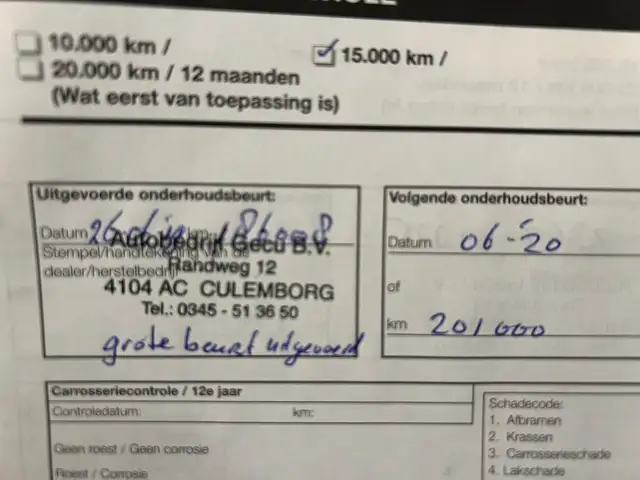 10.000 km /
15.000 km /
20.000 km / 12 maanden
(Wat eerst van toepassing is)
Uitgevoerde onderhoudsbeurt:
Datum 26 km 186008
Stempel/handtekening van de
dealer/herstelbedrijf
Autobedrijf Gecu B.V.
Randweg 12
4104 AC CULEMBORG
Tel.: 0345 - 51 36 50
grote beurt uitgevoerd
Volgende onderhoudsbeurt:
Datum 06-'20
of
km 201000
Carrosseriecontrole / 12e jaar
Controledatum: km:
Geen roest / Geen corrosie
Roest / Corrosie
Schadecode:
1. Afbramen
2. Krassen
3. Carrosserieschade
4. Lakschade